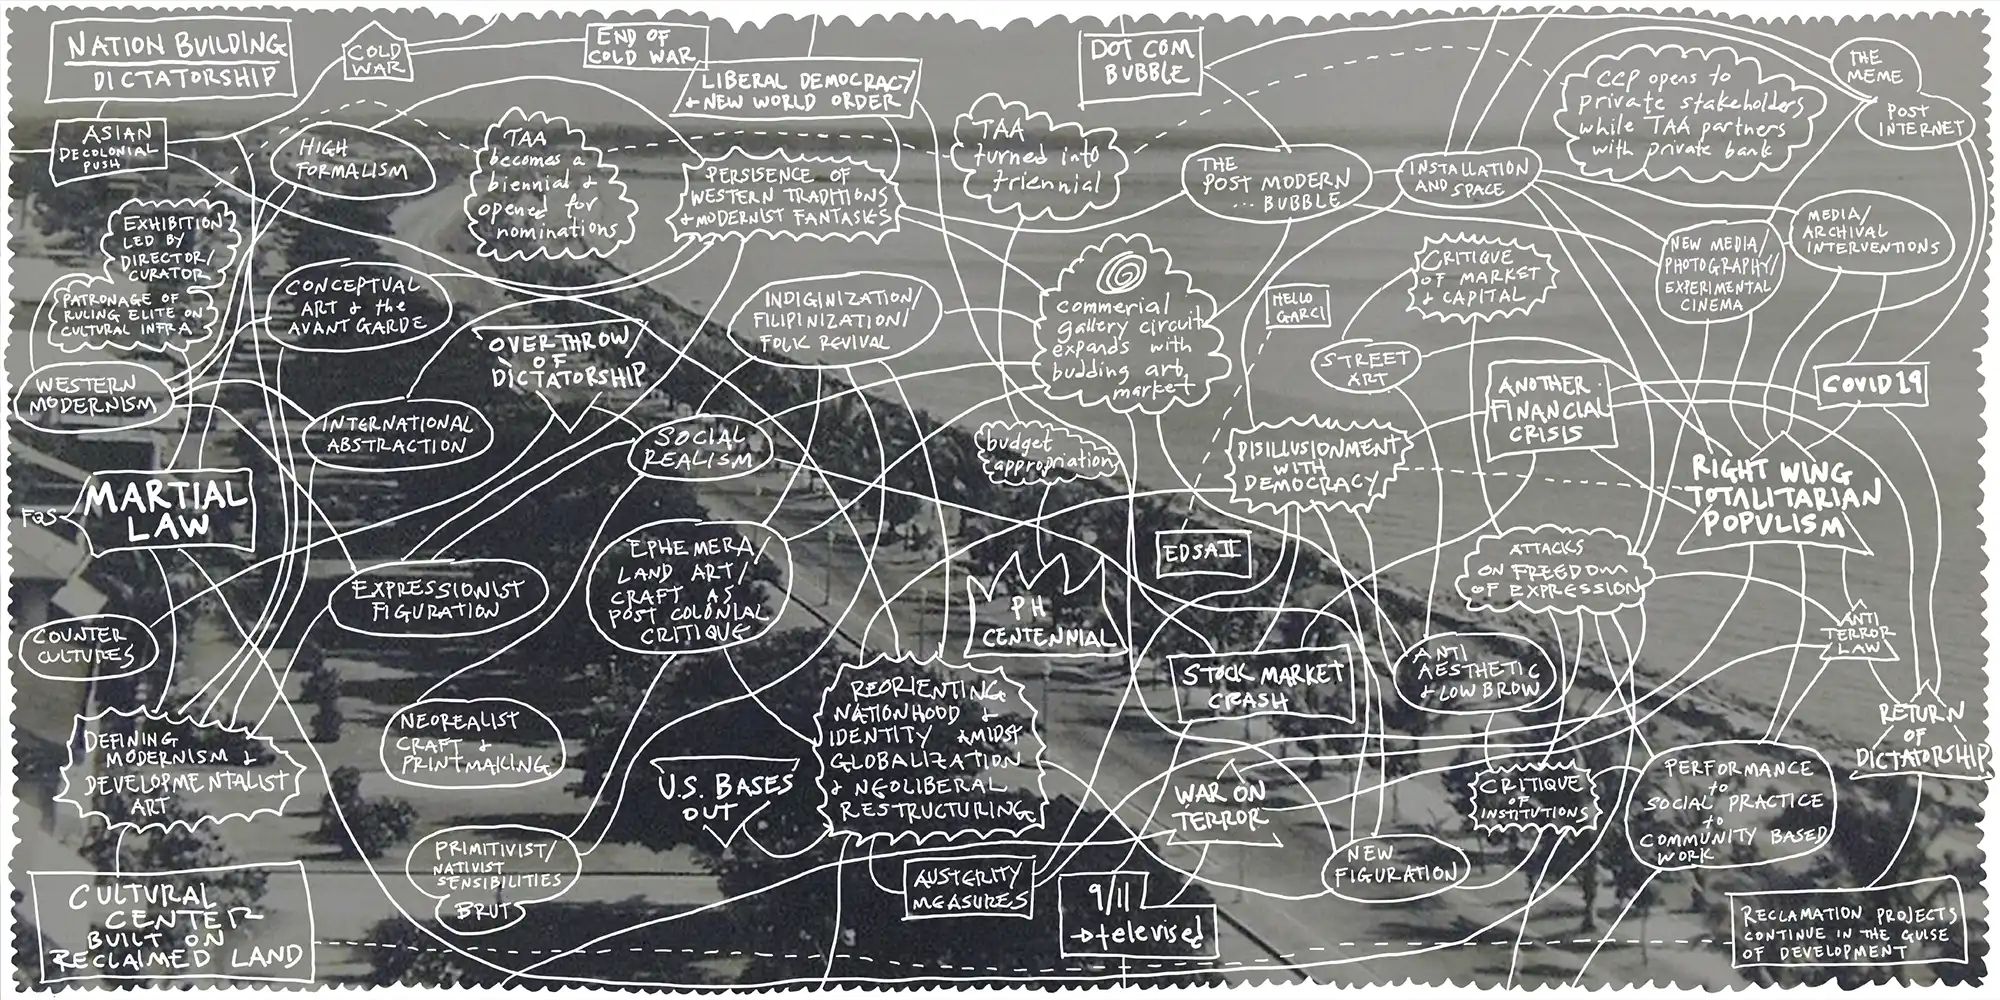 NATION BUILDING
DICTATORSHIP
COLD
WAR
END OF
COLD WAR
LIBERAL DEMOCRACY
+ NEW WORLD ORDER
DOT COM
BUBBLE
CCP opens to
private stakeholders
while TAA partners
with private bank
THE
MEME
POST
INTERNET
ASIAN
DECOLONIAL
PUSH
HIGH
FORMALISM
TAA
becomes a
biennial &
opened for
nominations
PERSISENCE OF
WESTERN TRADITIONS
& MODERNIST FANTASIES
TAA
turned into
triennial
THE
POST MODERN
... BUBBLE
INSTALLATION
AND SPACE
MEDIA/
ARCHIVAL
INTERVENTIONS
EXHIBITION
LED BY
DIRECTOR/
CURATOR
PATRONAGE OF
RULING ELITE ON
CULTURAL INFRA
CONCEPTUAL
ART & the
AVANT GARDE
OVERTHROW
OF
DICTATORSHIP
INDIGINIZATION/
FILIPINIZATION/
FOLK REVIVAL
commerial
gallery circuit
expands with
budding art
market
HELLO
GARCI
CRITIQUE
OF MARKET
& CAPITAL
NEW MEDIA/
PHOTOGRAPHY/
EXPERIMENTAL
CINEMA
STREET
ART
WESTERN
MODERNISM
INTERNATIONAL
ABSTRACTION
SOCIAL
REALISM
budget
appropriation
DISILLUSIONMENT
WITH
DEMOCRACY
ANOTHER
FINANCIAL
CRISIS
COVID 19
FQS
MARTIAL
LAW
RIGHT WING
TOTALITARIAN
POPULISM
EXPRESSIONIST
FIGURATION
EPHEMERA/
LAND ART/
CRAFT AS
POST COLONIAL
CRITIQUE
PH
CENTENNIAL
EDSA II
ATTACKS
ON FREEDOM
OF EXPRESSION
ANTI
TERROR
LAW
COUNTER
CULTURES
STOCK MARKET
CRASH
ANTI
AESTHETIC
& LOW BROW
RETURN
OF
DICTATORSHIP
DEFINING
MODERNISM &
DEVELOPMENTALIST
ART
NEOREALIST
CRAFT &
PRINTMAKING
U.S. BASES
OUT
REORIENTING
NATIONHOOD &
IDENTITY AMIDST
GLOBALIZATION
& NEOLIBERAL
RESTRUCTURING
WAR ON
TERROR
CRITIQUE
OF
INSTITUTIONS
PERFORMANCE
to
SOCIAL PRACTICE
to
COMMUNITY BASED
WORK
PRIMITIVIST/
NATIVIST
SENSIBILITIES
BRUTS
AUSTERITY
MEASURES
NEW
FIGURATION
CULTURAL
CENTER
BUILT ON
RECLAIMED LAND
9/11
→ televised
RECLAMATION PROJECTS
CONTINUE IN THE GUISE
OF DEVELOPMENT